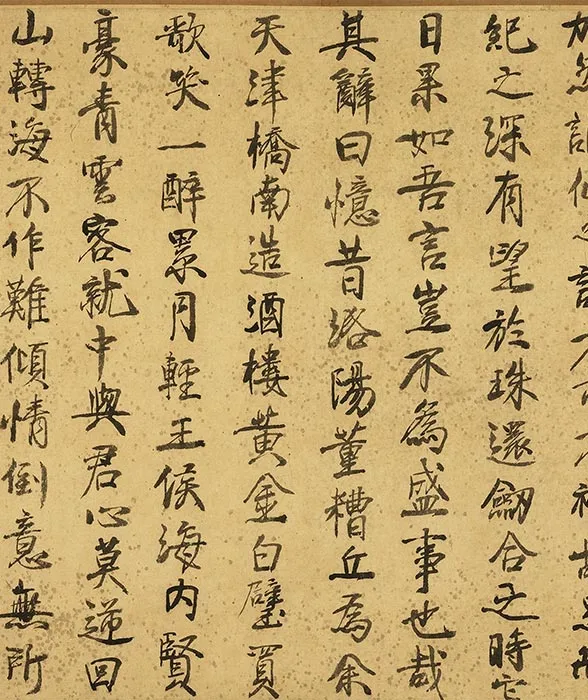 紀之深有望於珠還劒合之時
日果如吾言豈不為盛事也哉
其辭曰憶昔洛陽董糟丘為余
天津橋南造酒樓黃金白璧買
歌笑一醉累月輕王侯海內賢
豪青雲客就中與君心莫逆回
山轉海不作難傾情倒意無所